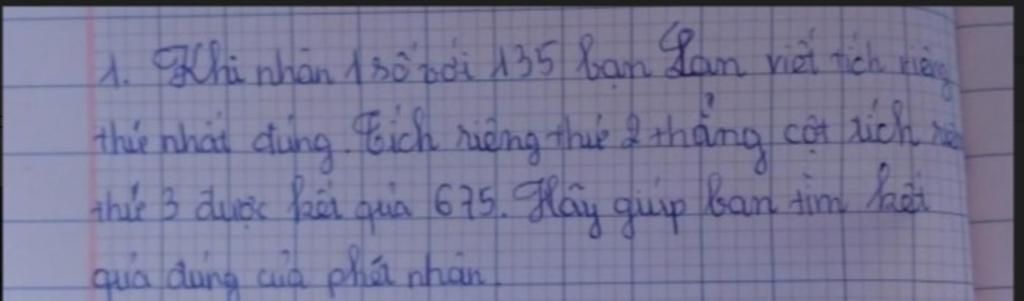 1. Khi nhân 1 số với 135 bạn Lan viết tích riêng
thứ nhất đúng. Tích riêng thứ 2 thẳng cột tích
thứ 3 được kết quả 675. Hãy giúp bạn tìm kết
quả đúng của phép nhân.